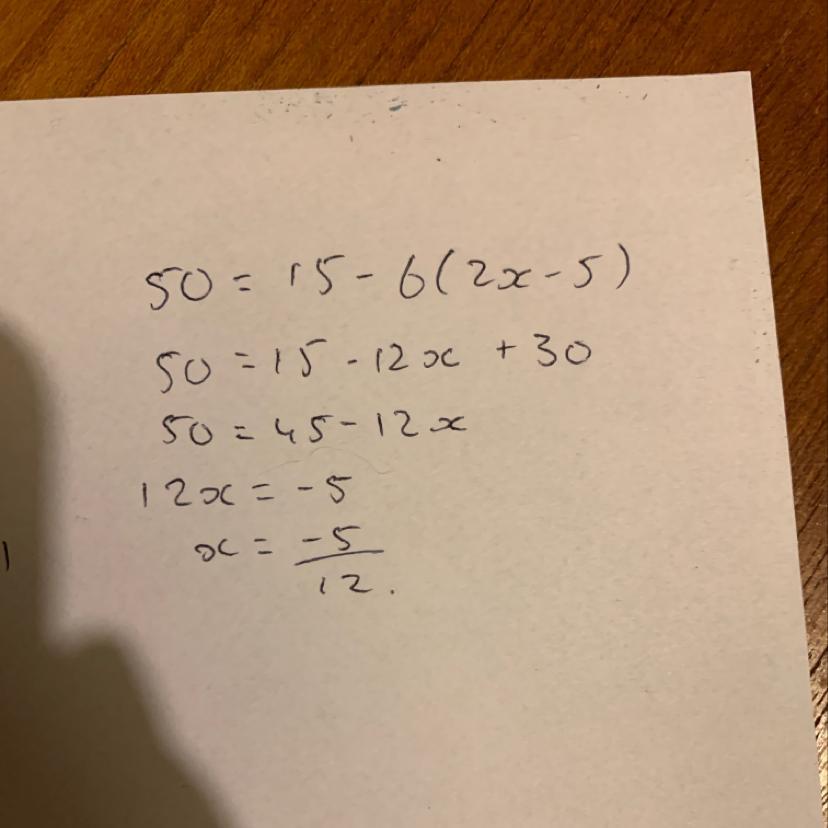 50 = 15 - 6(2x - 5)
50 = 15 - 12x + 30
50 = 45 - 12x
12x = -5
x = -5/12.